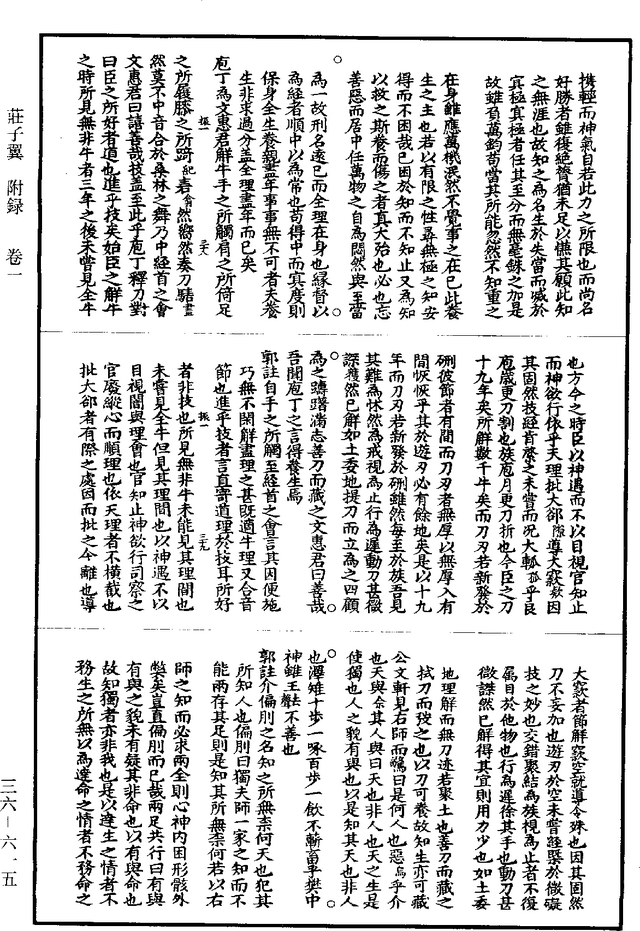 莊子翼 附録 卷一
攜輕而神氣自若此力之所限也而尚名
好勝者雖復絶膂猶未足以慊其願此知
之無涯也故知之為名生於失當而滅於
冥極冥極者任其至分而無毫銖之加是
故雖負萬鈞苟當其所能忽然不知重之
在身雖應萬機泯然不覺事之在已此養
生之主也若以有限之性尋無極之知安
得而不困哉已困於知而不知止又為知
以救之斯養而傷之者真大殆也必也忘
善惡而居中任萬物之自為悶然與至當
為一故刑名遠已而全理在身也縁督以
為經者順中以為常也苟得中而冥度則
保身全生養親盡年事事無不可者夫養
生非求過分盖全理盡年而已矣
庖丁為文惠君解牛手之所觸肩之所倚足
之所履膝之所踦砉然嚮然奏刀騞
然莫不中音合於桑林之舞乃中經首之會
文惠君曰譆善哉技盖至此乎庖丁釋刀對
曰臣之所好者道也進乎技矣始臣之解牛
之時所見無非牛者三年之後未嘗見全牛
也方今之時臣以神遇而不以目視官知止
而神欲行依乎天理批大郤導大窾因
其固然技經肯綮之未嘗而况大軱乎良
庖歲更刀割也族庖月更刀折也今臣之刀
十九年矣所解數千牛矣而刀刃若新發於
硎彼節者有間而刀刃者無厚以無厚入有
間恢恢乎其於遊刃必有餘地矣是以十九
年而刀刃若新發於硎雖然每至於族吾見
其難為怵然為戒視為止行為遲動刀甚微
謋然已解如土委地提刀而立為之四顧
為之躊躇滿志善刀而藏之文惠君曰善哉
吾聞庖丁之言得養生焉
郭註自手之所觸至經首之會言其因便施
巧無不閑解盡理之甚既適牛理又合音
節也進乎技者言直寄道理於技耳所好
者非技也所見無非牛未能見其理間也
未嘗見全牛但見其理間也以神遇不以
目視闇與理會也官知止神欲行司察之
官廢縱心而順理也依天理者不横截也
批大郤者有際之處因而批之令離也導
大窾者節解窾空就導令殊也因其固然
刀不妄加也遊刃於空未嘗經槩於微礙
技之妙也交錯聚結為族視為止者不復
屬目於他物也行為遲徐其手也動刀甚
微謋然已解得其宜則用力少也如土委
地理解而無刀迹若聚土也善刀而藏之
拭刀而弢之也以刀可養故知生亦可藏
公文軒見右師而驚曰是何人也惡乎介
也天與人與曰天也非人也天之生是
使獨也人之貌有與也以是知其天也非人
也澤雉十步一啄百步一飲不蘄畜乎樊中
神雖王不善也
郭註介偏刖之名知之所無柰何天也犯其
所知人也偏刖曰獨夫師一家之知而不
能兩存其足則是知其所無柰何若以右
師之知而必求兩全則心神内困形骸外
弊矣豈直偏刖而已哉兩足共行曰有與
有與之貌未有疑其非命也以有與命也
故知獨者亦非我也是以達生之情者不
務生之所無以為達命之情者不務命之
三六－六一五